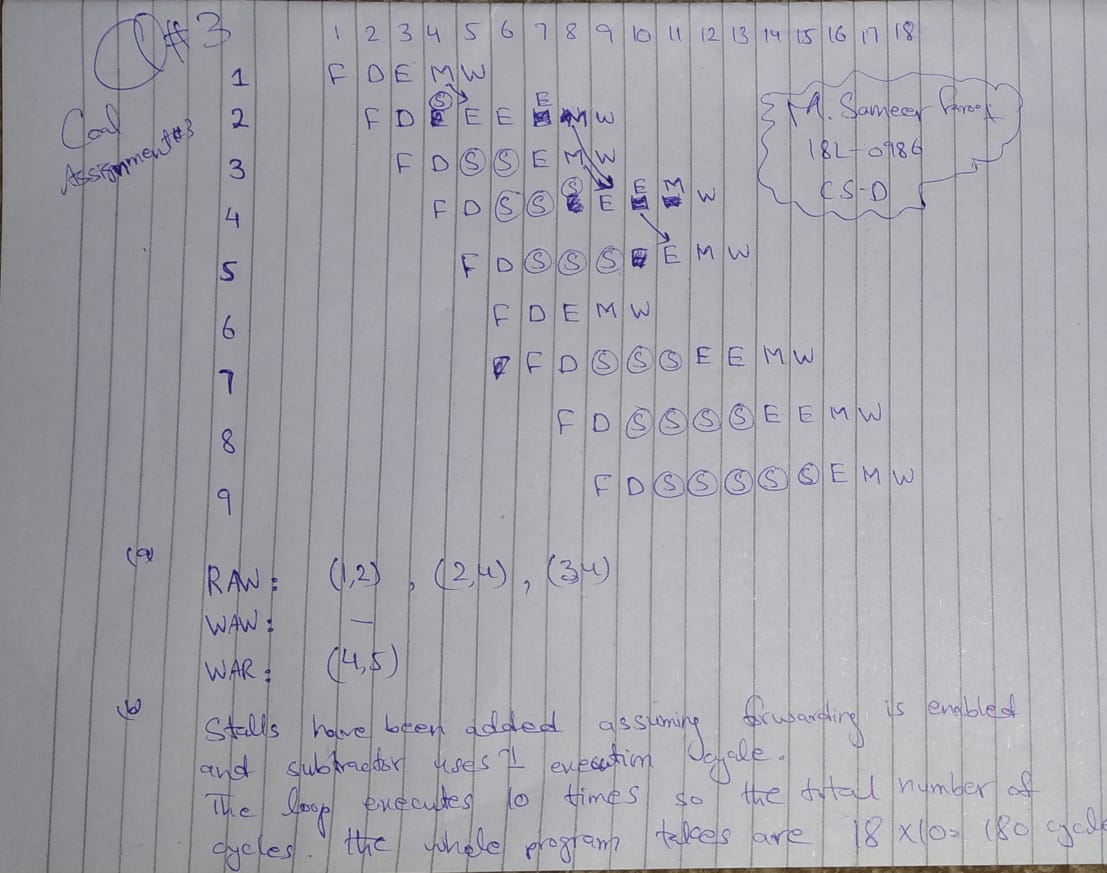 Q#3
Coal
Assignment#3
1 2 3 4 5 6 7 8 9 10 11 12 13 14 15 16 17 18
1 F D E M W
2 F D S E E E M W
3 F D S S E M W
4 F D S S S E E M W
5 F D S S S E M W
6 F D E M W
7 F D S S S E E M W
8 F D S S S S E E M W
9 F D S S S S S E M W
M. Sameer
18L-0986
CS-D
(a)
RAW: (1,2) , (2,4) , (3,4)
WAW: —
WAR: (4,5)
(b)
Stalls have been added assuming forwarding is enabled
and subtractor uses 1 execution cycle.
The loop executes 10 times so the total number of
cycles. the whole program takes are 18 x 10 = 180 cycle